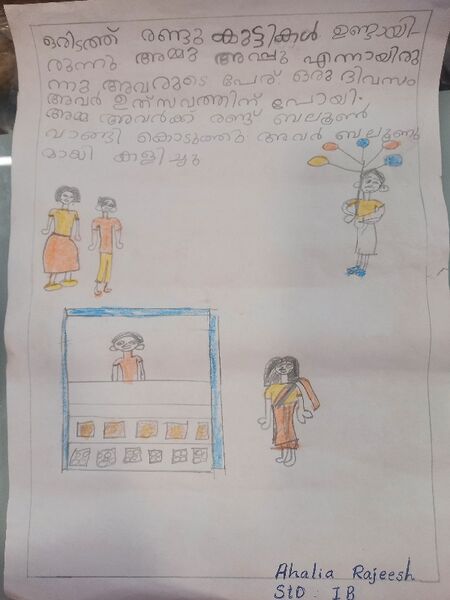 ഒരിടത്ത് രണ്ടു കുട്ടികൾ ഉണ്ടായി-
രുന്നു അമ്മു അപ്പു എന്നായിരു
ന്നു അവരുടെ പേര് ഒരു ദിവസം
അവർ ഉത്സവത്തിന് പോയി.
അമ്മ അവർക്ക് രണ്ട് ബലൂൺ
വാങ്ങി കൊടുത്തു അവർ ബലൂണു
മായി കളിച്ചു
Ahalia Rajeesh
STD : I B